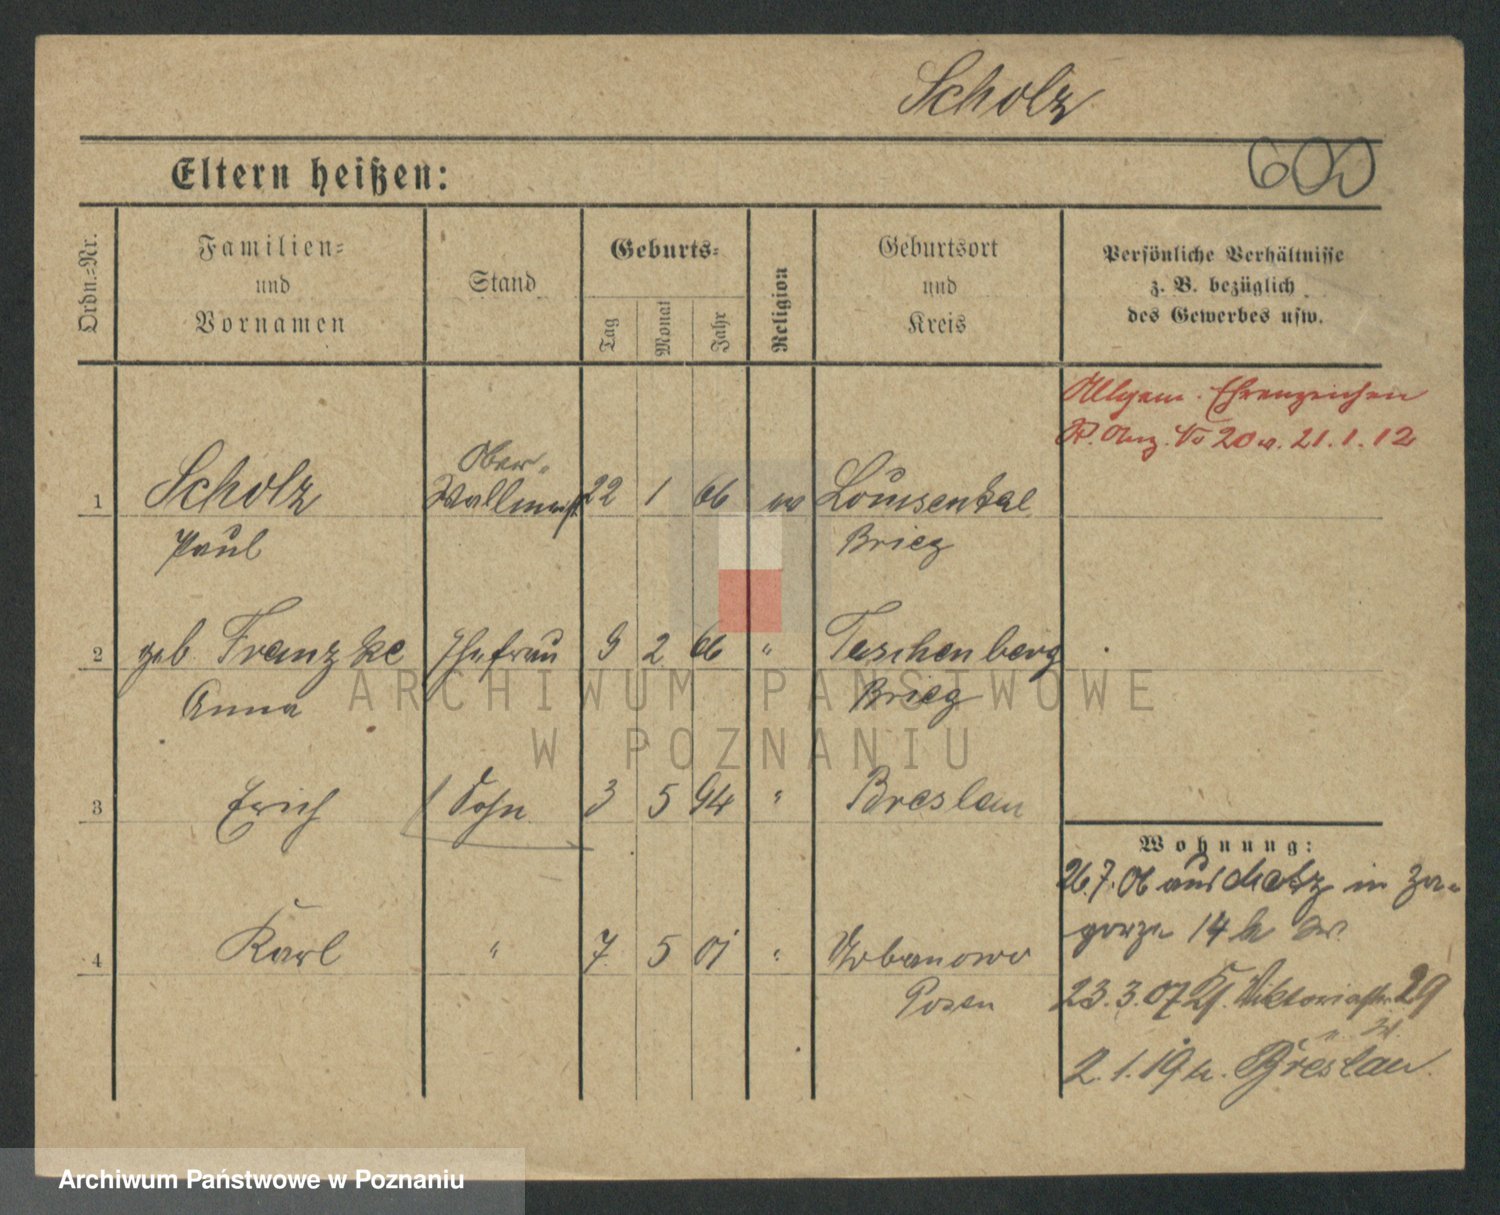 Scholz
600
Eltern heißen:
Ordn.-Nr.
Familien-
und
Vornamen
Stand
Geburts-
Tag
Monat
Jahr
Religion
Geburtsort
und
Kreis
Persönliche Verhältnisse
z. B. bezüglich
des Gewerbes usw.
Allgem. Ehrenzeichen
No 20 v. 21.1.12
1 Scholz Ober- Wallmeist. 22 1 66 ev Louisenthal
Paul Brieg
2 geb Franzke Ehefrau 9 2 66 " Taschenberg
Anna Brieg
3 Erich Sohn 3 5 94 " Breslau
Wohnung:
26.7.06 aus Metz in Za-
gorze 14 b
4 Karl " 7 5 01 " Urbanowo
Posen
23.3.07 Viktoriastr 29
2.1.19 n. Breslau.
ARCHIWUM PAŃSTWOWE
W POZNANIU
Archiwum Państwowe w Poznaniu